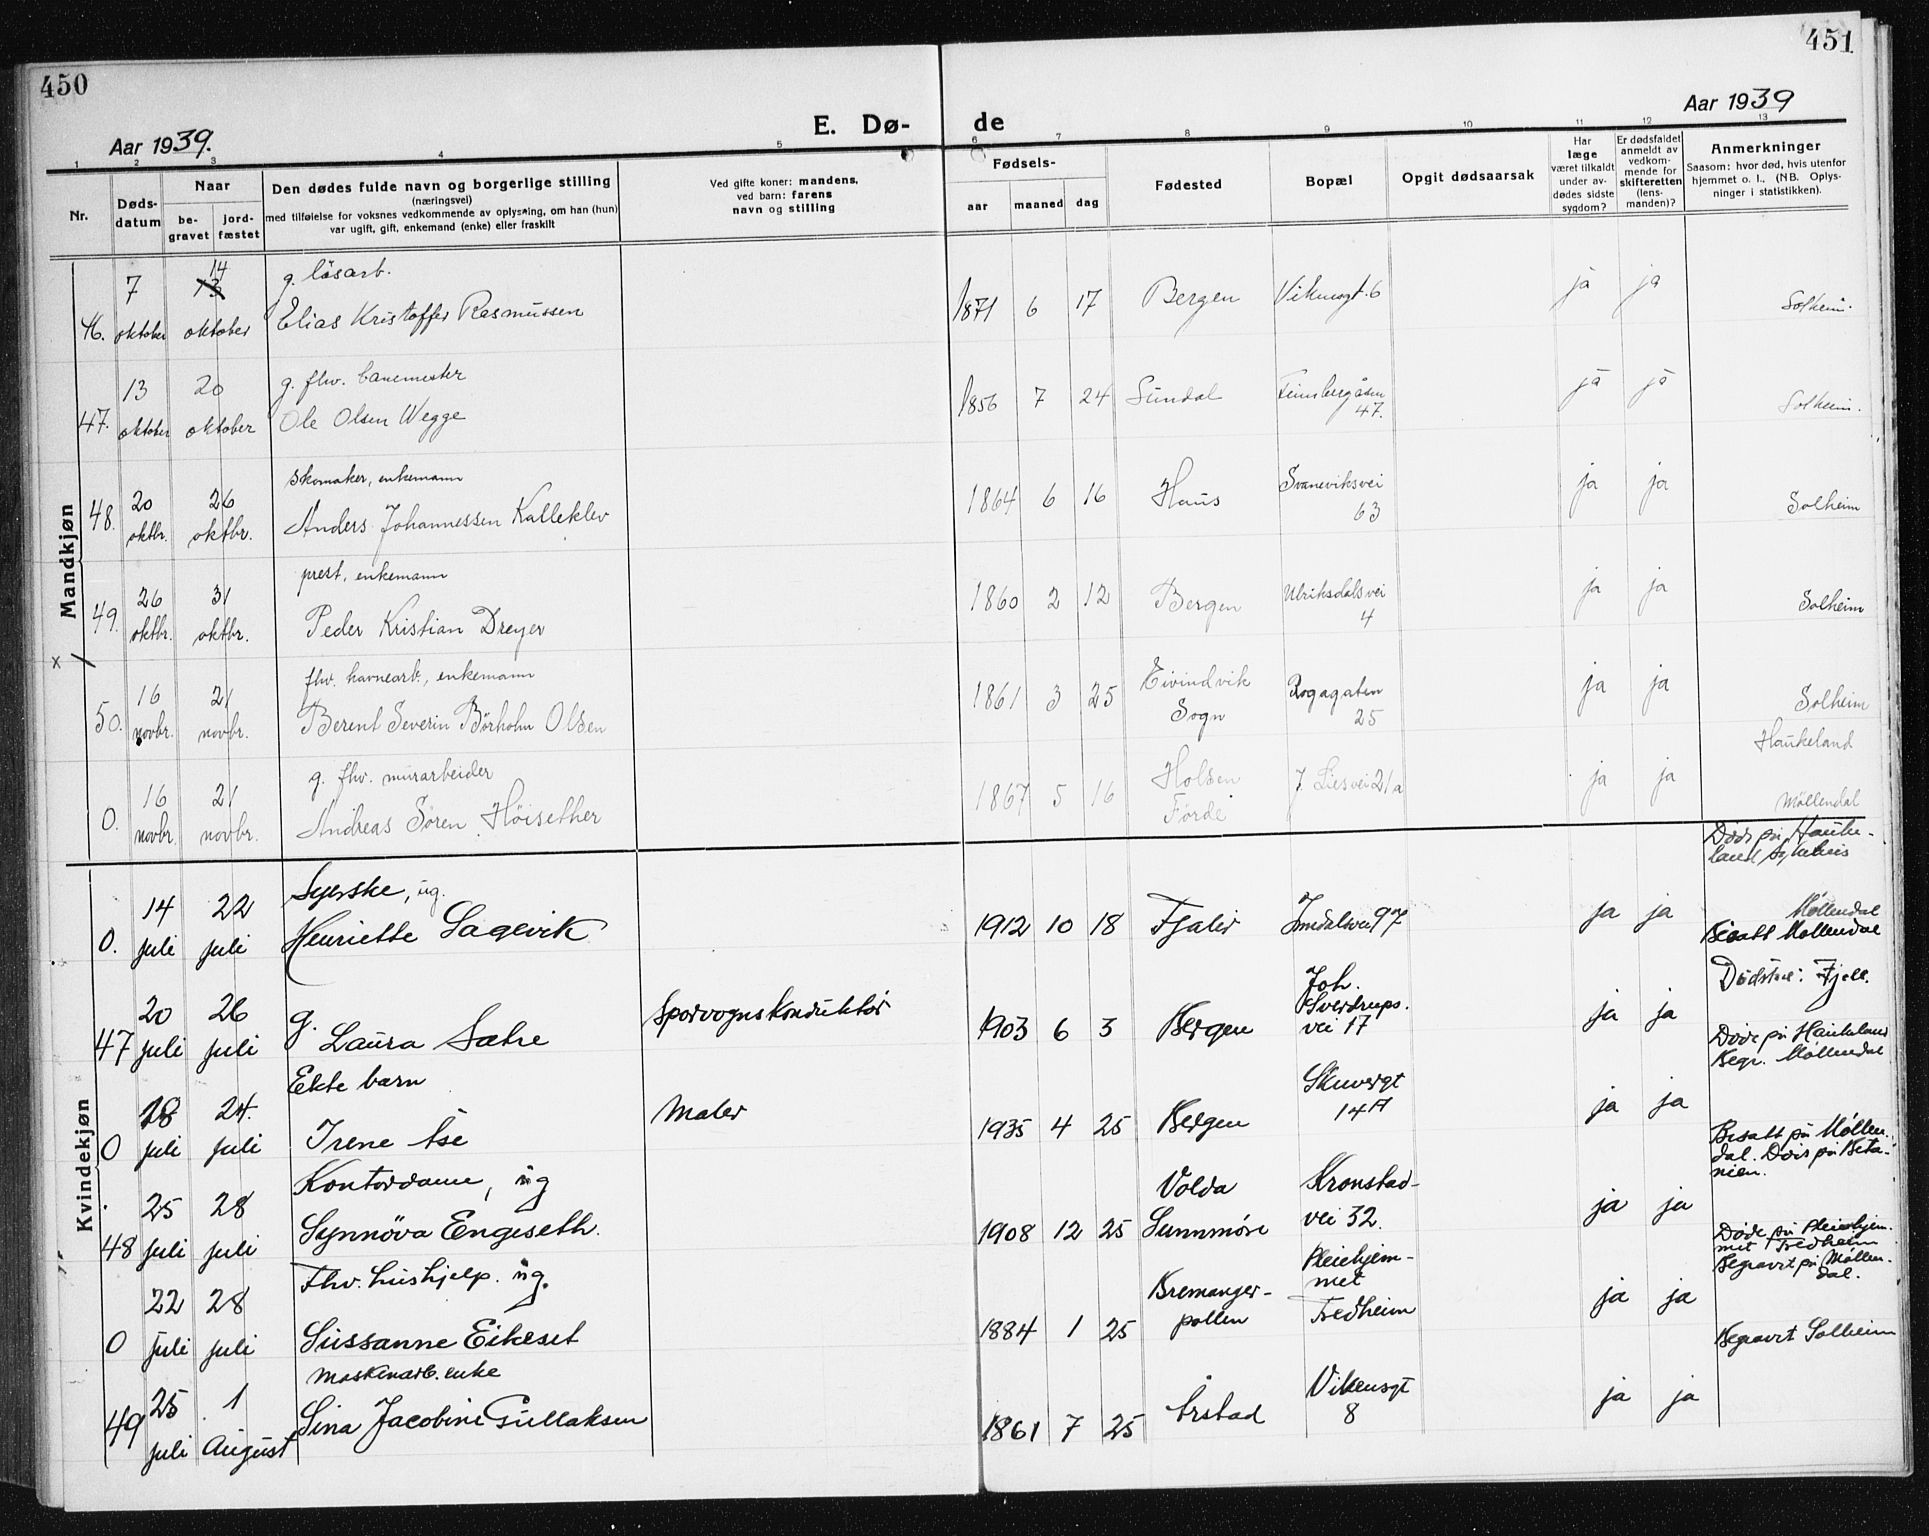 450
451
Aar 1939.
E. Dø-
de
Aar 1939
1 2 3 4 5 6 7 8 9 10 11 12 13
Nr.
Døds-
datum
Naar
be-
gravet
jord-
fæstet
Den dødes fulde navn og borgerlige stilling
(næringsvei)
med tilføielse for voksnes vedkommende av oplysning, om han (hun)
var ugift, gift, enkemand (enke) eller fraskilt
Ved gifte koner: mandens,
ved barn: farens
navn og stilling
Fødsels-
aar maaned dag
Fødested
Bopæl
Opgit dødsaarsak
Har
læge
været tilkaldt
under av-
dødes sidste
sygdom?
Er dødsfaldet
anmeldt av
vedkom-
mende for
skifteretten
(lens-
manden)?
Anmerkninger
Saasom: hvor død, hvis utenfor
hjemmet o. l., (NB. Oplys-
ninger i statistikken).
Mandkjøn
7 14 g. løsarb.
46. oktober oktober Elias Kristoffer Rasmussen 1871 6 17 Bergen Vikensgt. 6 ja ja Solheim.
13 20 g. fhv. banemester
47. oktober oktober Ole Olsen Wegge 1856 7 24 Sundal 47. ja ja Solheim.
20 26 skomaker, enkemann Svaneviksvei
48. oktbr. oktbr. Anders Johannessen Kalleklev 1864 6 16 Haus 63 ja ja Solheim
26 31 prest, enkemann Ulriksdalsvei
49. oktbr. oktbr. Peder Kristian Dreyer 1860 2 12 Bergen 4 ja ja Solheim
x /
16 21 fhv. havnearb., enkemann Eivindvik Rogagaten
50. novbr. novbr. Berent Severin Børholm Olsen 1861 3 25 Sogn 25 ja ja Solheim
Haukeland
16 21 g. fhv. murarbeider Holsen
0. novbr. novbr. Andreas Søren Høisether 1867 5 16 Førde J. Liesvei 21a ja ja Møllendal
Kvindekjøn
Døde på Hauke-
land Sykehus
14 22 Syerske, ug. Møllendal
0. juli juli Henriette Sagevik 1912 10 18 Fjaler 97 ja ja Bisatt Møllendal
Dødsted: Fjell.
20 26 g. Sporvognskonduktør Joh.
Sverdrups.
47 juli juli Laura Sætre 1903 6 3 Bergen vei 17 ja ja Døde på Haukeland
Begr. Møllendal
18 24. Ekte barn Maler Skuvergt
0 juli juli Irene Åse 1935 4 25 Bergen 14 A ja ja Bisatt på Møllen-
dal. Døds på Beta-
nien.
25 28 Kontordame, ug Volda Kronstad-
48 juli juli Synnöva Engeseth. 1908 12 25 Sunnmöre vei 32. ja ja
Døde på Pleiehjem-
met Fredheim
Begravet på Møllen-
dal.
22 28 Fhv. hushjelp. ug. Bremanger- Pleiehjem-
met
0 juli juli Sussanne Eikeset 1884 1 25 pollen Fredheim ja ja
Begravet Solheim
25 1 Maskinarb. enke Vikensgt
49 juli August Sina Jacobine Gullaksen 1861 7 25 Årstad 8 ja ja